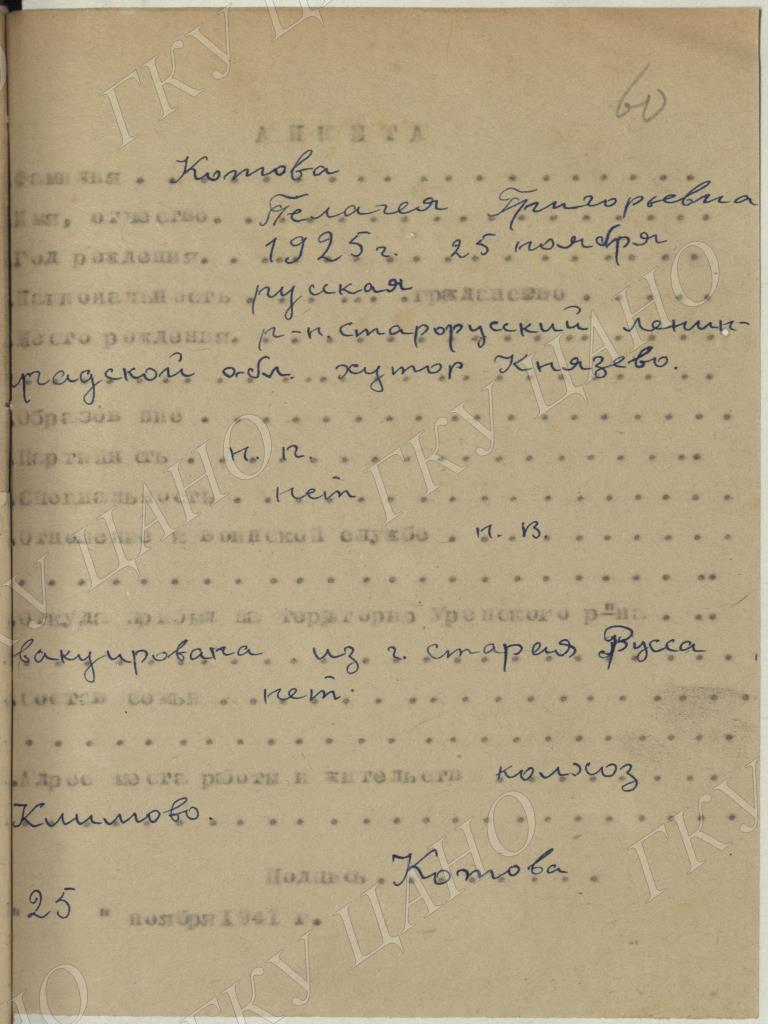 60
АНКЕТА
Фамилия . Котова
Имя, отчество. Пелагея Григорьевна
Год рождения. 1925 г. 25 ноября
Национальность русская гражданство
Место рождения. р-н. старорусский ленин-
градской обл. хутор Князево.
Образов ние
Партийн сть . н. п.
Специальность . нет
Отношение к воинской службе . н. в.
Откуда прибыл на территорию Уренского р-на
вакуирована из г. старая Русса
Состав семьи . нет.
Адрес места работы и жительств колхоз
Климово.
Подпись . Котова
"25" ноября 1941 г.
ГКУ ЦАНО